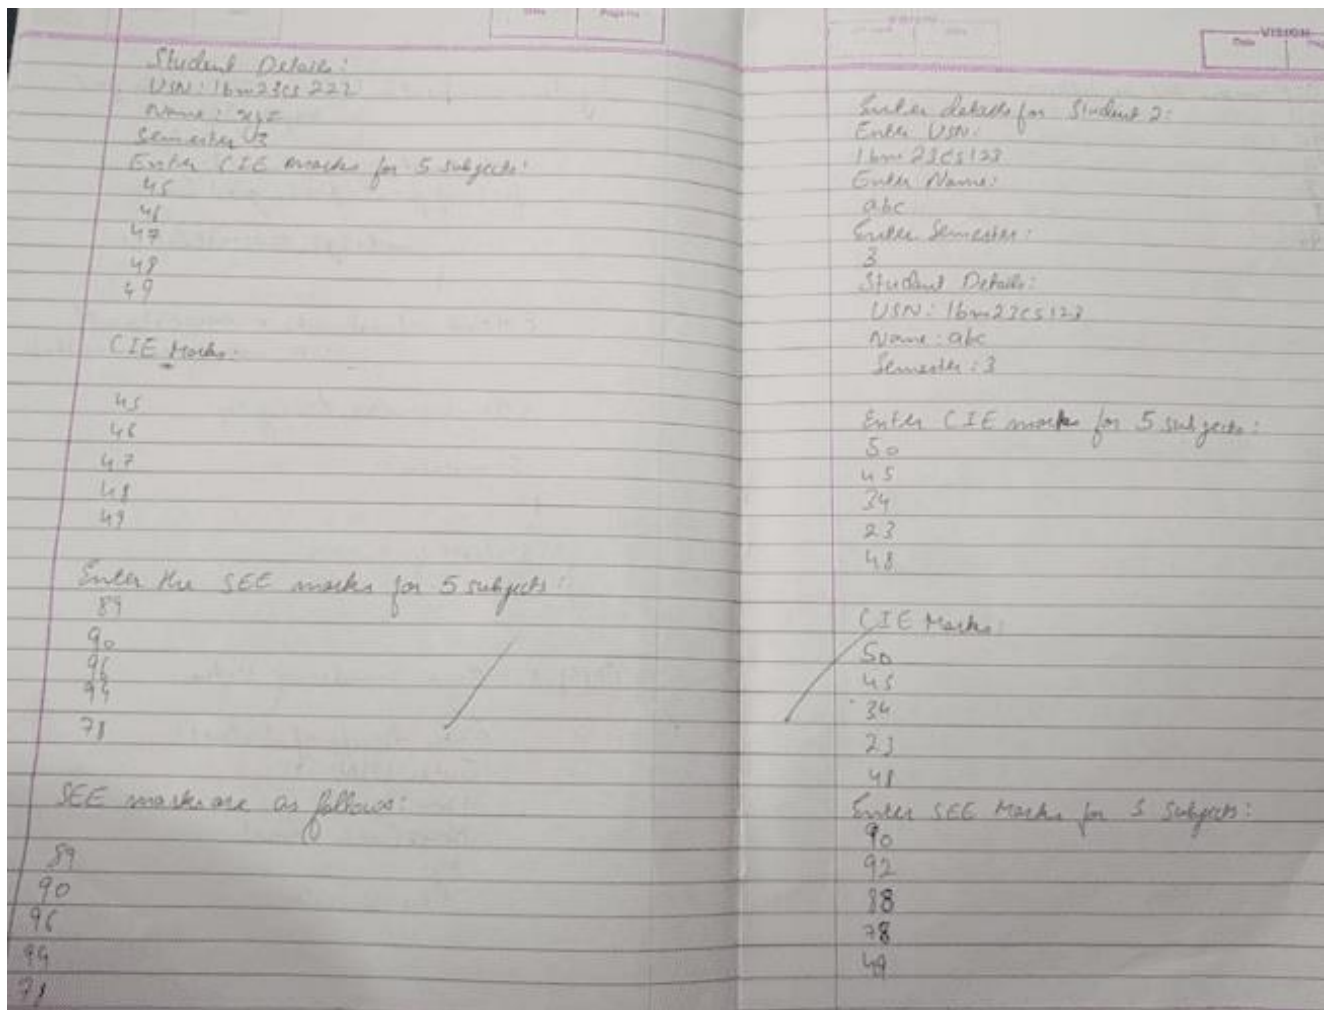 Student Details:
USN: 1bm23cs222
Name: xyz
Semester
Enter CIE marks for 5 subjects:
45
46
47
48
49
CIE Marks:
45
46
47
48
49
Enter the SEE marks for 5 subjects:
89
90
96
99
78
SEE marks are as follows:
89
90
96
99
78
VISION
Date
Enter details for Student 2:
Enter USN:
1bm23cs123
Enter Name:
abc
Enter Semester:
3
Student Details:
USN: 1bm23cs123
Name: abc
Semester: 3
Enter CIE marks for 5 subjects:
50
45
34
23
48
CIE Marks:
50
45
34
23
48
Enter SEE Marks for 5 Subjects:
90
92
88
78
49